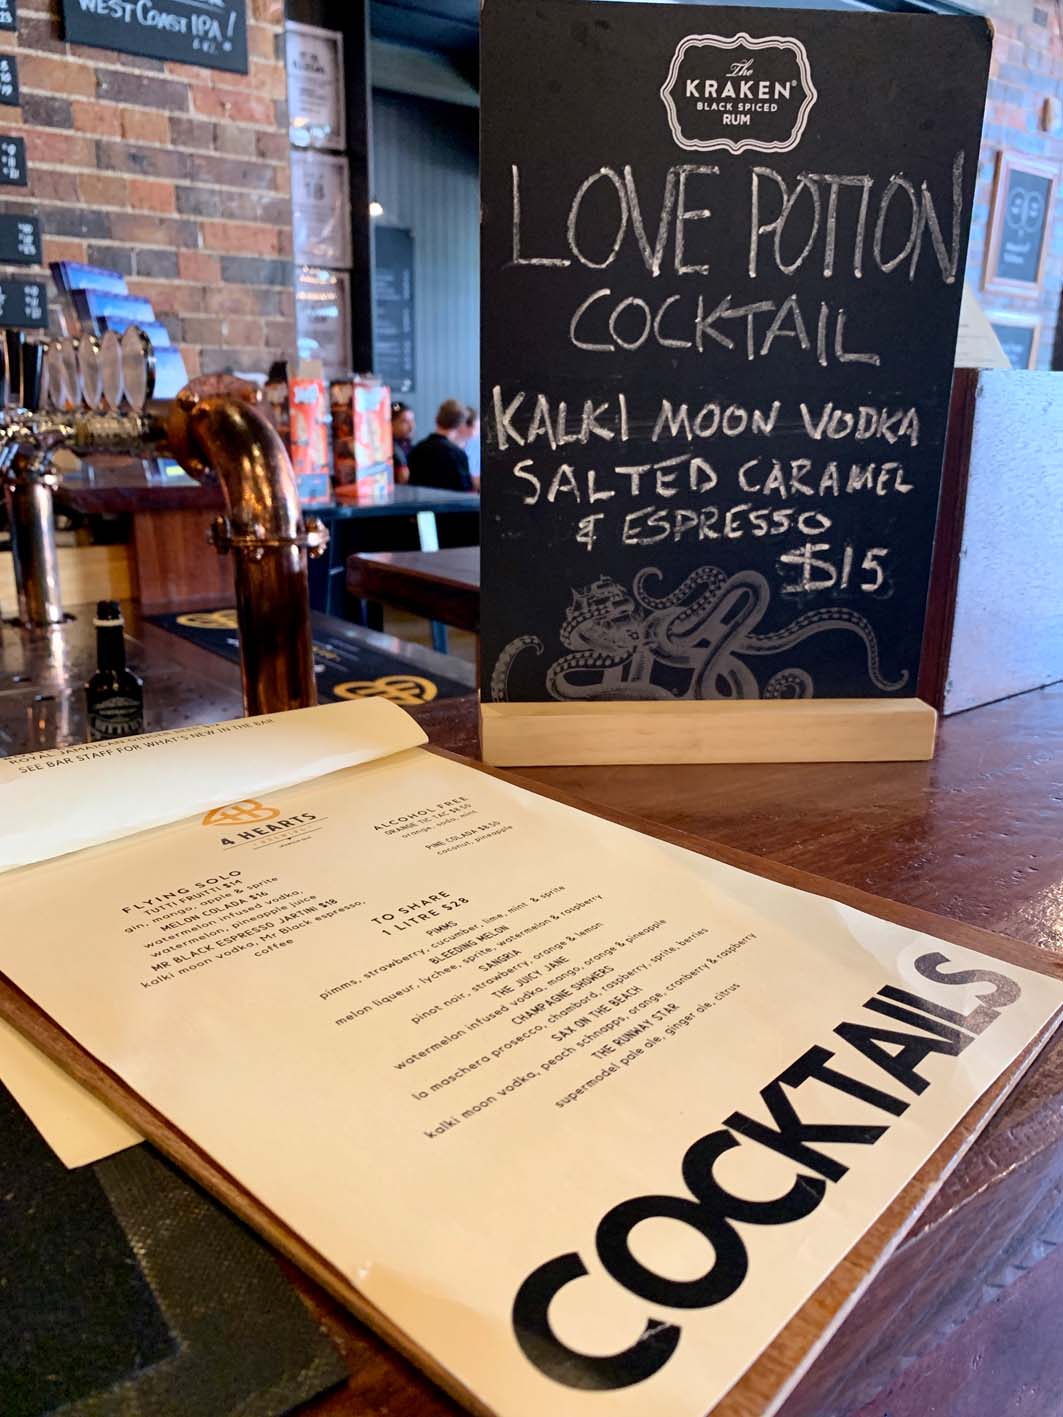 WEST COAST IPA!
The
KRAKEN®
BLACK SPICED
RUM
LOVE POTION
COCKTAIL
KALKI MOON VODKA
SALTED CARAMEL
& ESPRESSO
$15
ROYAL JAMAICAN GINGER
SEE BAR STAFF FOR WHAT'S NEW IN THE BAR
4 HEARTS
FLYING SOLO
TUTTI FRUITTI $14
mango, apple & sprite
MELON COLADA $16
gin, watermelon infused vodka,
watermelon, pineapple juice
MR BLACK ESPRESSO JARTINI $18
kalki moon vodka, Mr Black espresso,
coffee
ALCOHOL FREE
ORANGE TIC TAC $8.50
orange, soda, mint
PINE COLADA $8.50
coconut, pineapple
TO SHARE
1 LITRE $28
PIMMS
pimms, strawberry, cucumber, lime, mint & sprite
BLEEDING MELON
melon liqueur, lychee, sprite, watermelon & raspberry
SANGRIA
pinot noir, strawberry, orange & lemon
THE JUICY JANE
watermelon infused vodka, mango, orange & pineapple
CHAMPAGNE SHOWERS
la maschera prosecco, chambord, raspberry, sprite, berries
SAX ON THE BEACH
kalki moon vodka, peach schnapps, orange, cranberry & raspberry
THE RUNWAY STAR
supermodel pale ale, ginger ale, citrus
COCKTAILS